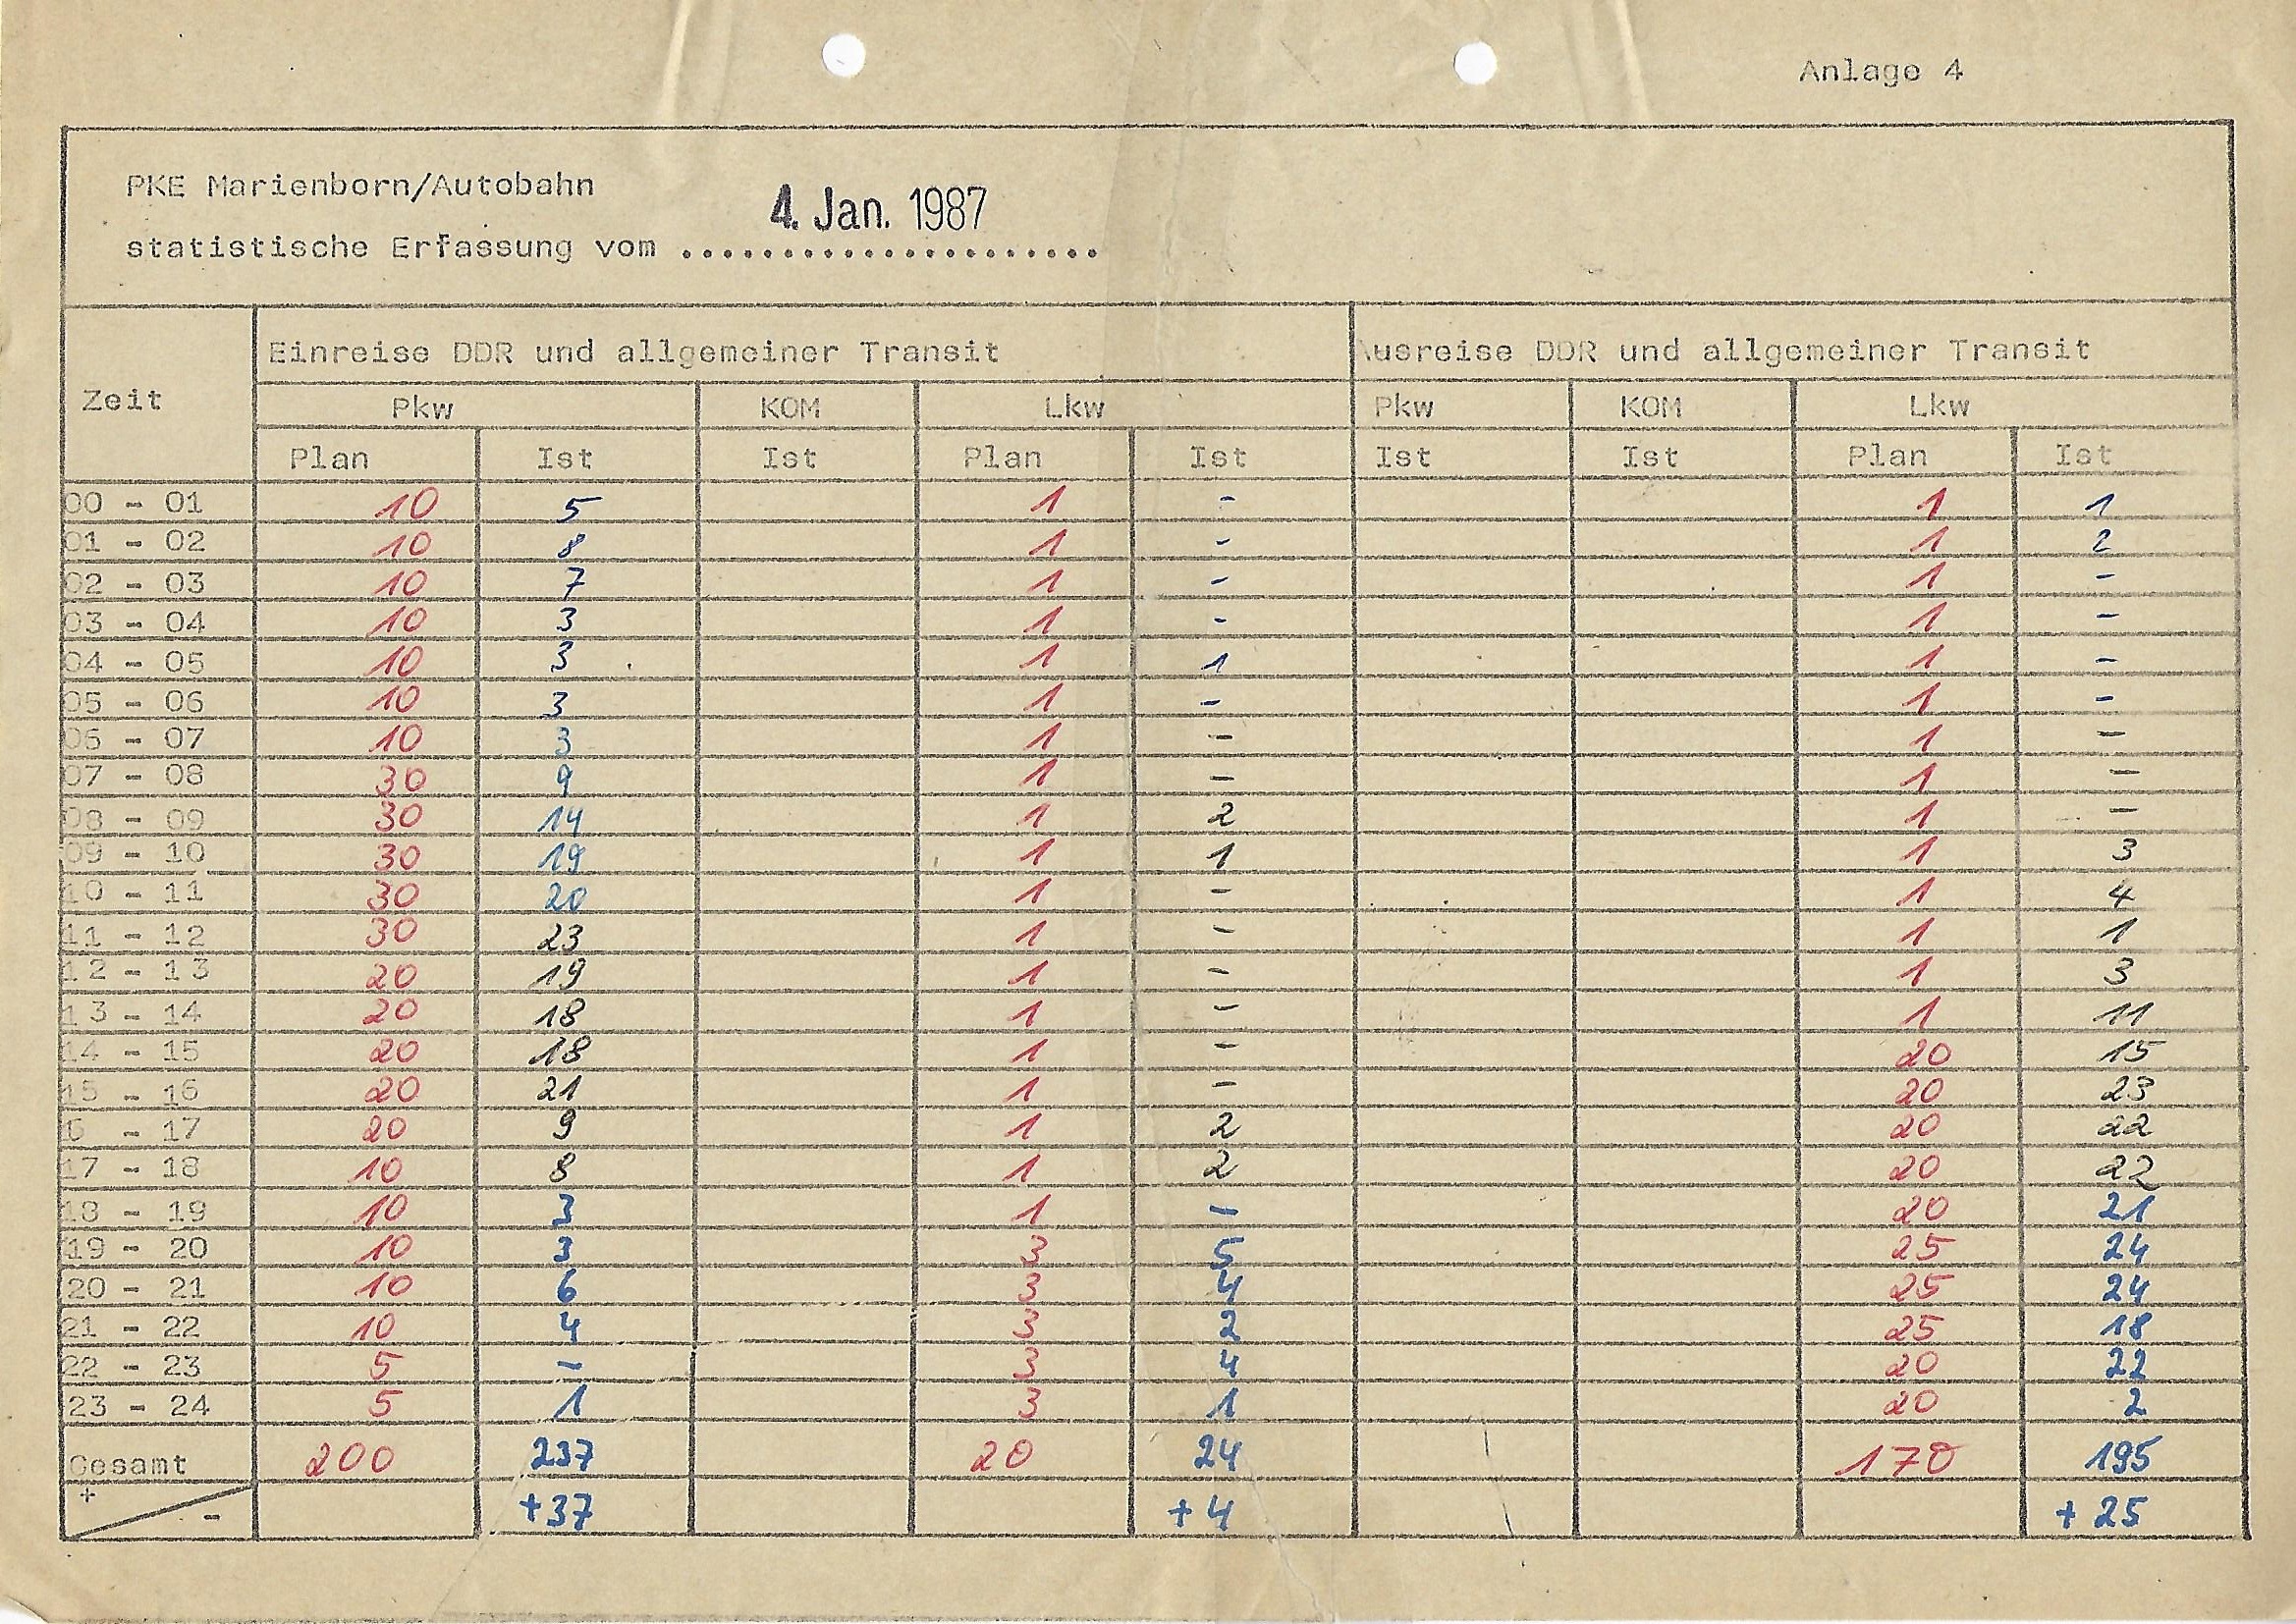 Anlage 4
PKE Marienborn/Autobahn
4. Jan. 1987
statistische Erfassung vom ......................
Zeit Einreise DDR und allgemeiner Transit Ausreise DDR und allgemeiner Transit
Pkw KOM Lkw Pkw KOM Lkw
Plan Ist Ist Plan Ist Ist Ist Plan Ist
00 - 01 10 5 1 - 1 1
01 - 02 10 8 1 - 1 2
02 - 03 10 7 1 - 1 -
03 - 04 10 3 1 - 1 -
04 - 05 10 3 1 1 1 -
05 - 06 10 3 1 - 1 -
06 - 07 10 3 1 - 1 -
07 - 08 30 9 1 - 1 -
08 - 09 30 14 1 2 1 -
09 - 10 30 19 1 1 1 3
10 - 11 30 20 1 - 1 4
11 - 12 30 23 1 - 1 1
12 - 13 20 19 1 - 1 3
13 - 14 20 18 1 - 1 11
14 - 15 20 18 1 - 20 15
15 - 16 20 21 1 - 20 23
6 - 17 20 9 1 2 20 22
17 - 18 10 8 1 2 20 22
18 - 19 10 3 1 - 20 21
19 - 20 10 3 3 5 25 24
20 - 21 10 6 3 4 25 24
21 - 22 10 4 3 2 25 18
22 - 23 5 - 3 4 20 22
23 - 24 5 1 3 1 20 2
Gesamt 200 237 20 24 170 195
+ - +37 +4 +25